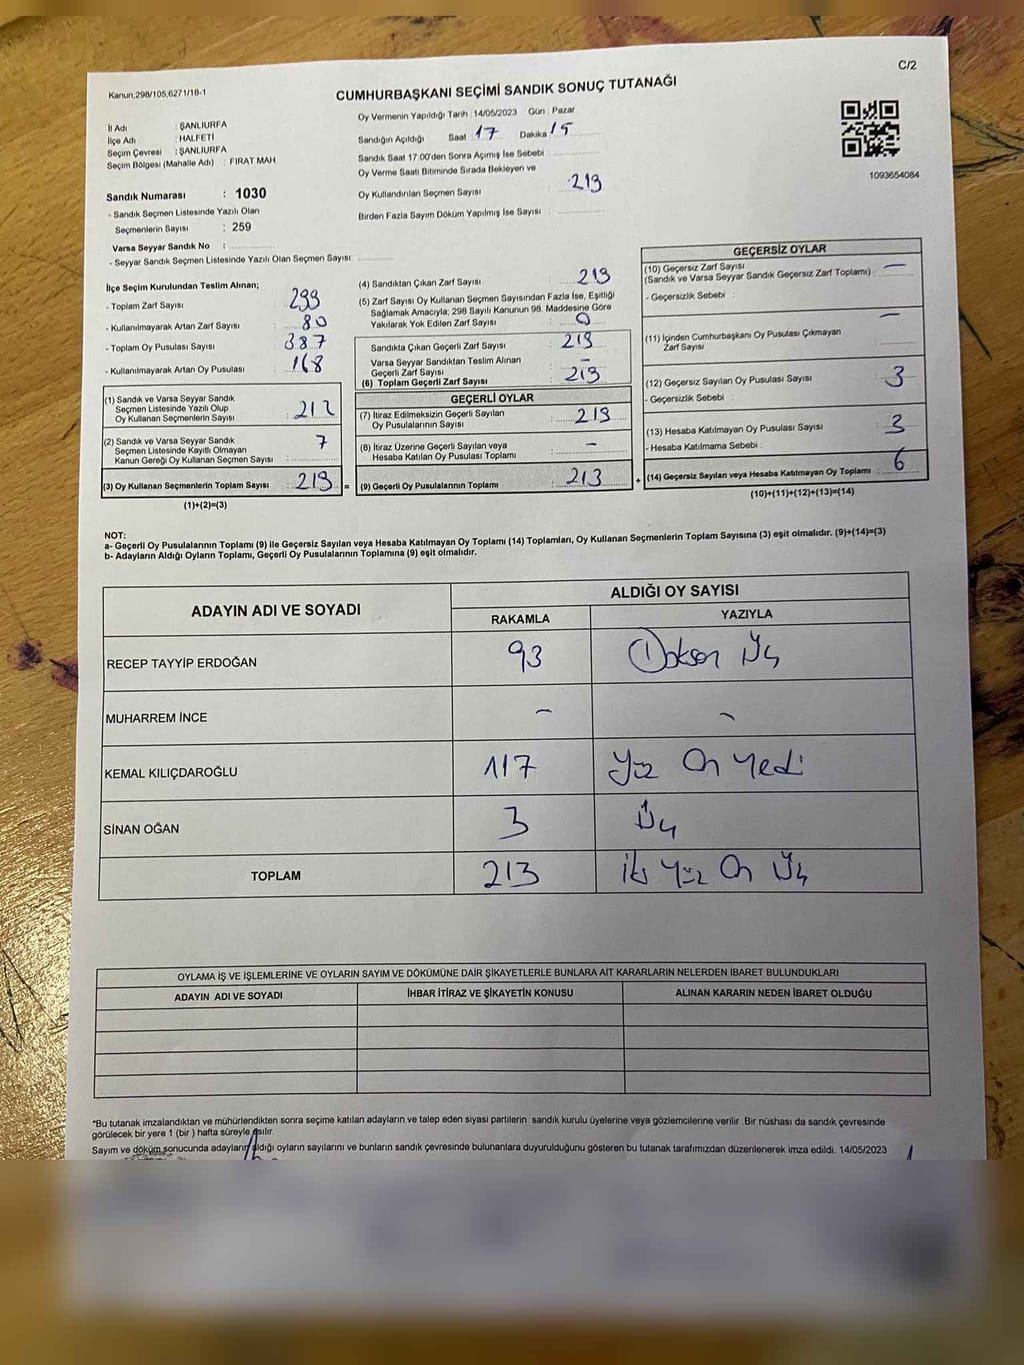 C/2
Kanun,298/105,6271/18-1
CUMHURBAŞKANI SEÇİMİ SANDIK SONUÇ TUTANAĞI
İl Adı : ŞANLIURFA
İlçe Adı : HALFETİ
Seçim Çevresi : ŞANLIURFA
Seçim Bölgesi (Mahalle Adı) : FIRAT MAH.
Sandık Numarası : 1030
- Sandık Seçmen Listesinde Yazılı Olan
Seçmenlerin Sayısı : 259
Varsa Seyyar Sandık No :
- Seyyar Sandık Seçmen Listesinde Yazılı Olan Seçmen Sayısı:
Oy Vermenin Yapıldığı Tarih : 14/05/2023 Gün : Pazar
Sandığın Açıldığı Saat : 17 Dakika : 15
Sandık Saat 17:00'den Sonra Açımış İse Sebebi :
Oy Verme Saati Bitiminde Sırada Bekleyen ve
Oy Kullandırılan Seçmen Sayısı : 219
Birden Fazla Sayım Döküm Yapılmış İse Sayısı :
1093654084
İlçe Seçim Kurulundan Teslim Alınan;
- Toplam Zarf Sayısı : 299
- Kullanılmayarak Artan Zarf Sayısı : 80
- Toplam Oy Pusulası Sayısı : 387
- Kullanılmayarak Artan Oy Pusulası : 168
(1) Sandık ve Varsa Seyyar Sandık
Seçmen Listesinde Yazılı Olup
Oy Kullanan Seçmenlerin Sayısı : 212
(2) Sandık ve Varsa Seyyar Sandık
Seçmen Listesinde Kayıtlı Olmayan
Kanun Gereği Oy Kullanan Seçmen Sayısı : 7
(3) Oy Kullanan Seçmenlerin Toplam Sayısı : 219 =
(1)+(2)=(3)
(4) Sandıktan Çıkan Zarf Sayısı : 219
(5) Zarf Sayısı Oy Kullanan Seçmen Sayısından Fazla İse, Eşitliği
Sağlamak Amacıyla; 298 Sayılı Kanunun 98. Maddesine Göre
Yakılarak Yok Edilen Zarf Sayısı : 0
Sandıkta Çıkan Geçerli Zarf Sayısı : 219
Varsa Seyyar Sandıktan Teslim Alınan
Geçerli Zarf Sayısı : -
(6) Toplam Geçerli Zarf Sayısı : 219
GEÇERLİ OYLAR
(7) İtiraz Edilmeksizin Geçerli Sayılan
Oy Pusulalarının Sayısı : 213
(8) İtiraz Üzerine Geçerli Sayılan veya
Hesaba Katılan Oy Pusulası Toplamı : -
(9) Geçerli Oy Pusulalarının Toplamı : 213 +
GEÇERSİZ OYLAR
(10) Geçersiz Zarf Sayısı
(Sandık ve Varsa Seyyar Sandık Geçersiz Zarf Toplamı) : -
- Geçersizlik Sebebi :
(11) İçinden Cumhurbaşkanı Oy Pusulası Çıkmayan
Zarf Sayısı : -
(12) Geçersiz Sayılan Oy Pusulası Sayısı : 3
- Geçersizlik Sebebi :
(13) Hesaba Katılmayan Oy Pusulası Sayısı : 3
- Hesaba Katılmama Sebebi :
(14) Geçersiz Sayılan veya Hesaba Katılmayan Oy Toplamı : 6
(10)+(11)+(12)+(13)=(14)
NOT:
a- Geçerli Oy Pusulalarının Toplamı (9) ile Geçersiz Sayılan veya Hesaba Katılmayan Oy Toplamı (14) Toplamları, Oy Kullanan Seçmenlerin Toplam Sayısına (3) eşit olmalıdır. (9)+(14)=(3)
b- Adayların Aldığı Oyların Toplamı, Geçerli Oy Pusulalarının Toplamına (9) eşit olmalıdır.
ADAYIN ADI VE SOYADI ALDIĞI OY SAYISI
RAKAMLA YAZIYLA
RECEP TAYYİP ERDOĞAN 93 Doksan Üç
MUHARREM İNCE - -
KEMAL KILIÇDAROĞLU 117 Yüz On Yedi
SİNAN OĞAN 3 Üç
TOPLAM 213 İki Yüz On Üç
OYLAMA İŞ VE İŞLEMLERİNE VE OYLARIN SAYIM VE DÖKÜMÜNE DAİR ŞİKAYETLERLE BUNLARA AİT KARARLARIN NELERDEN İBARET BULUNDUKLARI
ADAYIN ADI VE SOYADI İHBAR İTİRAZ VE ŞİKAYETİN KONUSU ALINAN KARARIN NEDEN İBARET OLDUĞU
*Bu tutanak imzalandıktan ve mühürlendikten sonra seçime katılan adayların ve talep eden siyasi partilerin sandık kurulu üyelerine veya gözlemcilerine verilir. Bir nüshası da sandık çevresinde
görülecek bir yere 1 (bir) hafta süreyle asılır.
Sayım ve döküm sonucunda adayların aldığı oyların sayılarını ve bunların sandık çevresinde bulunanlara duyurulduğunu gösteren bu tutanak tarafımızdan düzenlenerek imza edildi. 14/05/2023